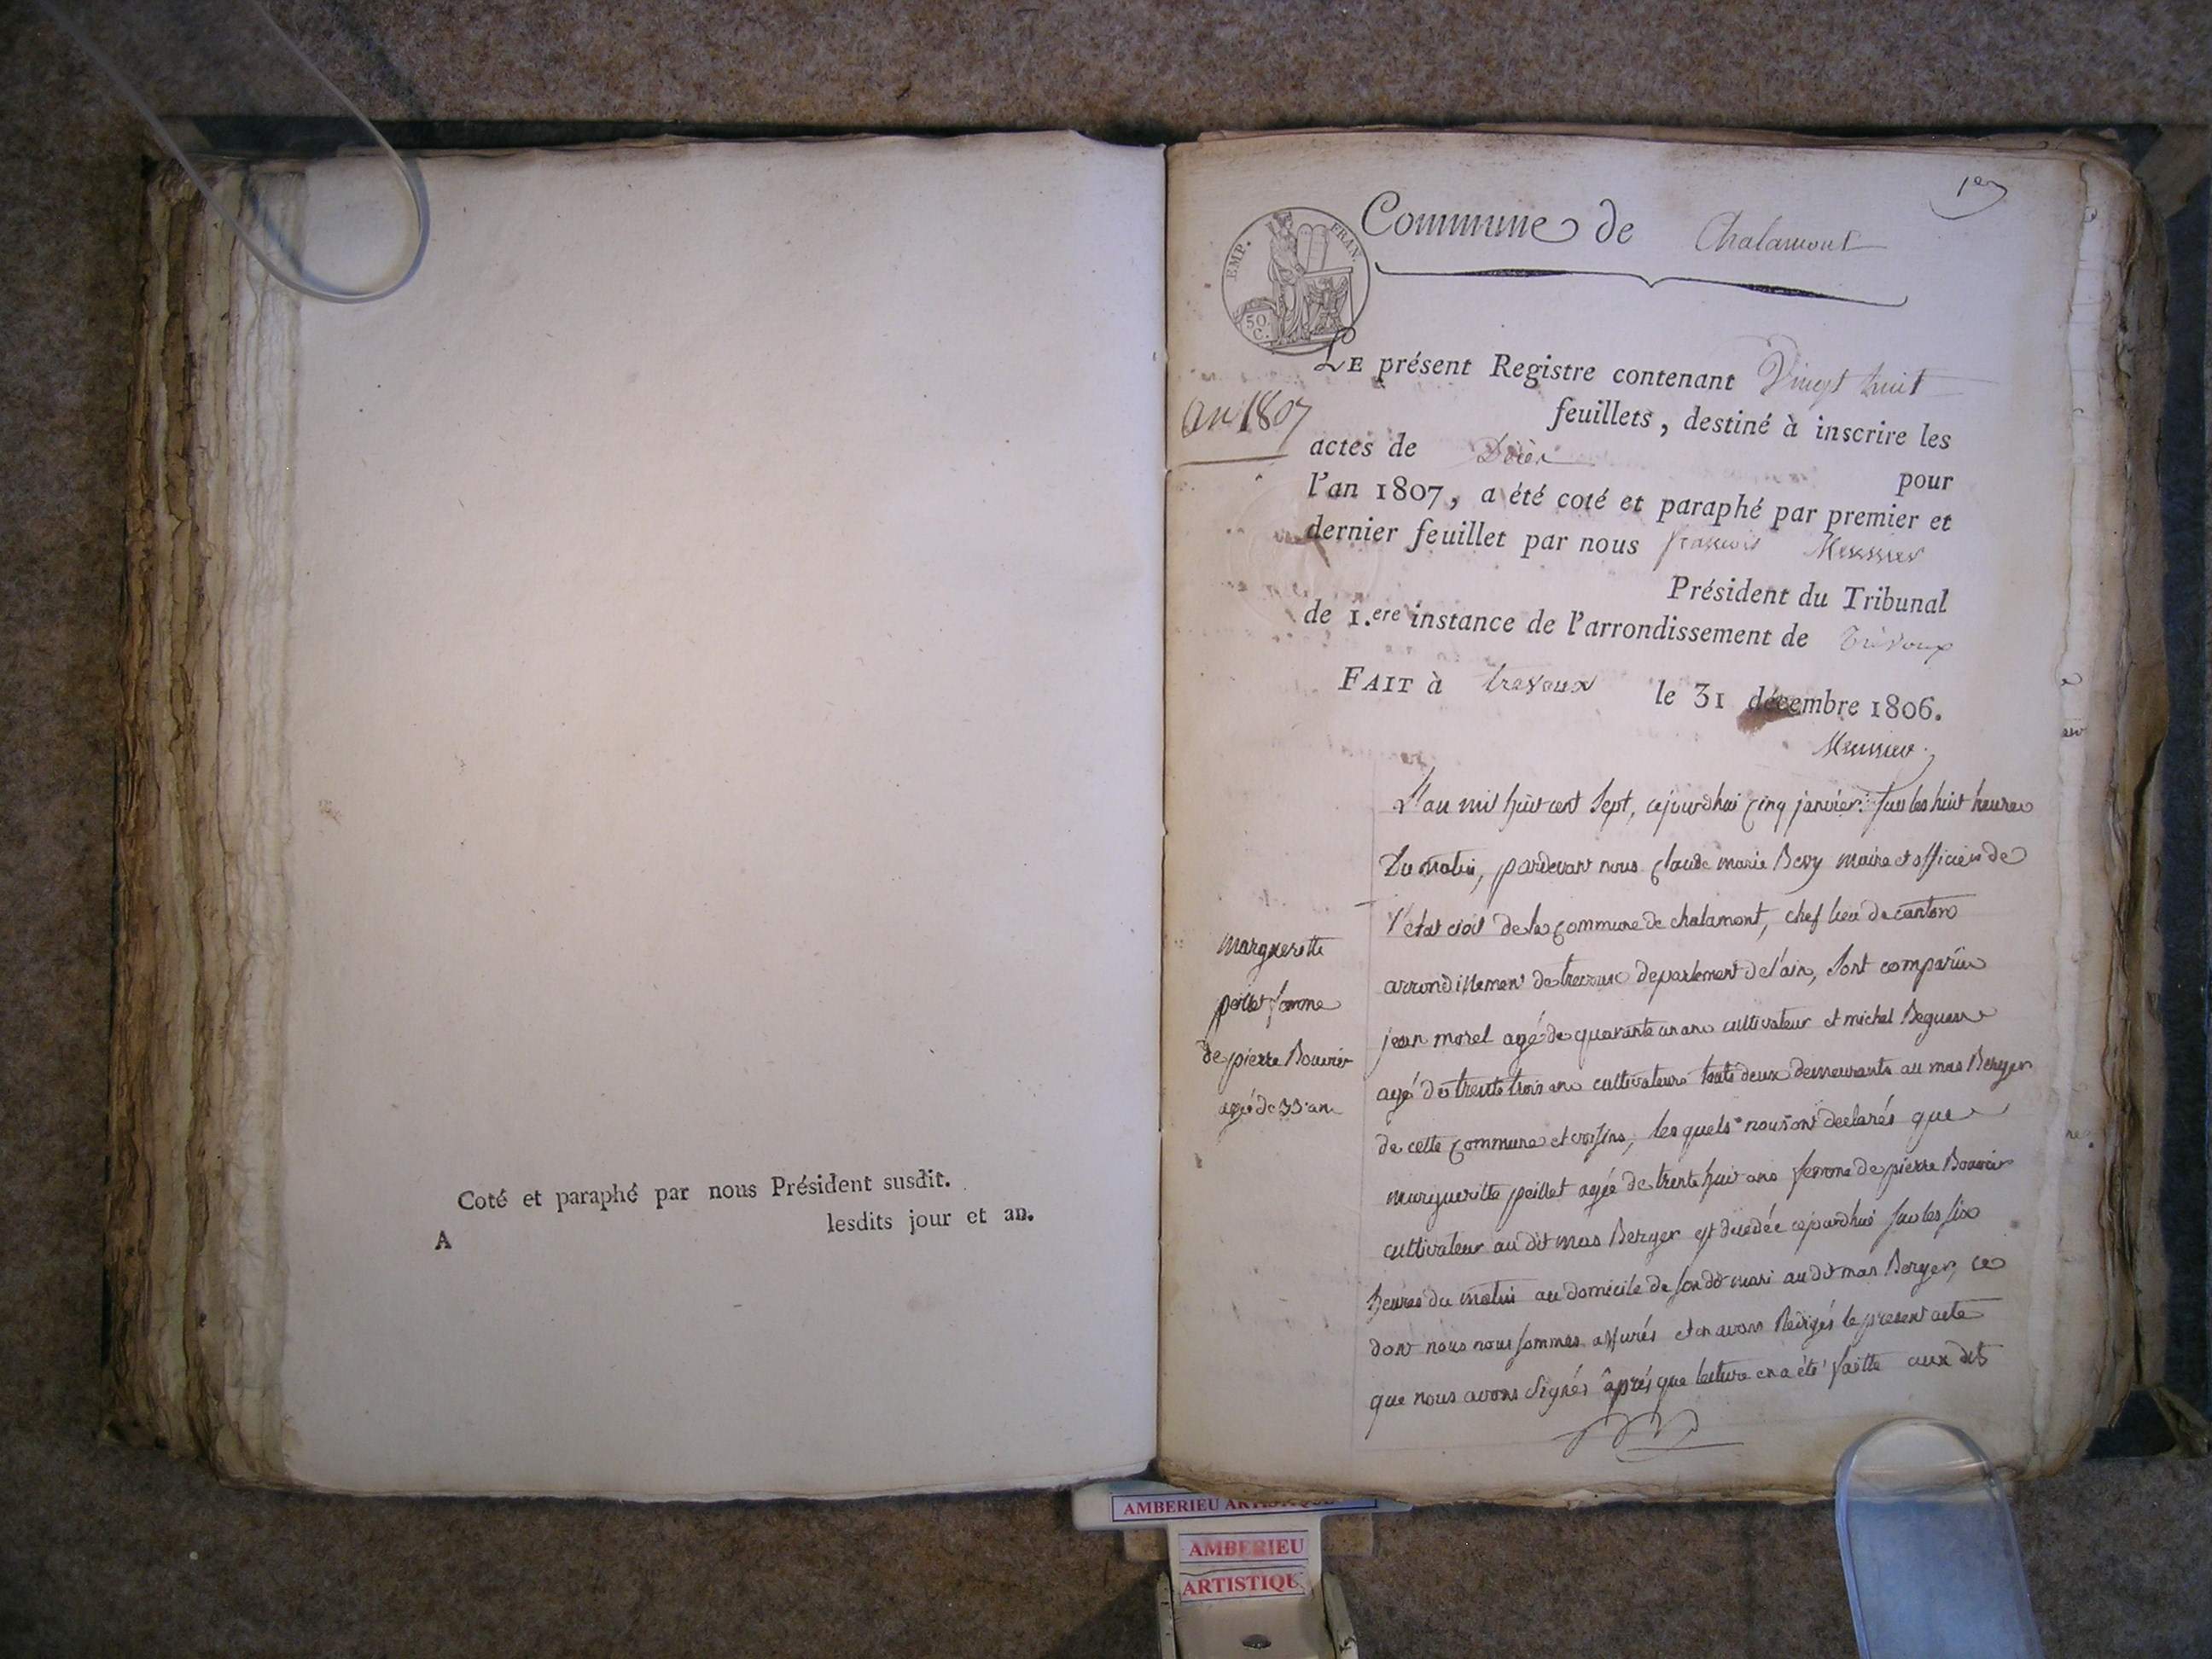 Coté et paraphé par nous Président susdit.
A lesdits jour et an.
1er
Commune de Chalamont
EMP. FRAN.
50 C.
LE présent Registre contenant Vingt huit
feuillets, destiné à inscrire les
an 1807
actes de Décès pour
l'an 1807, a été coté et paraphé par premier et
dernier feuillet par nous françois
Président du Tribunal
de 1.ere instance de l'arrondissement de Trévoux
FAIT à trevoux le 31 décembre 1806.
L'an mil huit cent sept, cejourdhui cinq janvier sur les huit heures
Du matin, pardevant nous claude marie maire et officier de
l'état civil de la commune de chalamont, chef lieu de canton
arrondissement de trevoux departement de l'ain, sont comparûs
jean morel agé de quarante un ans cultivateur et michel
agé de trente trois ans cultivateurs touts deux demeurants au mas Berger
de cette commune et voisins, lesquels nous ont declarés que
margueritte peillet agée de trente huit ans femme de pierre Bouvier
cultivateur au dit mas Berger est decedée cejourdhui sur les six
heures du matin au domicile de son dit mari au dit mas Berger, ce
dont nous nous sommes assurés et en avons Redigés le present acte
que nous avons signés âprés que lecture en a été faitte aux dits
margueritte
peillet femme
de pierre Bouvier
agée de ans
AMBERIEU ARTISTIQUE
AMBERIEU
ARTISTIQU